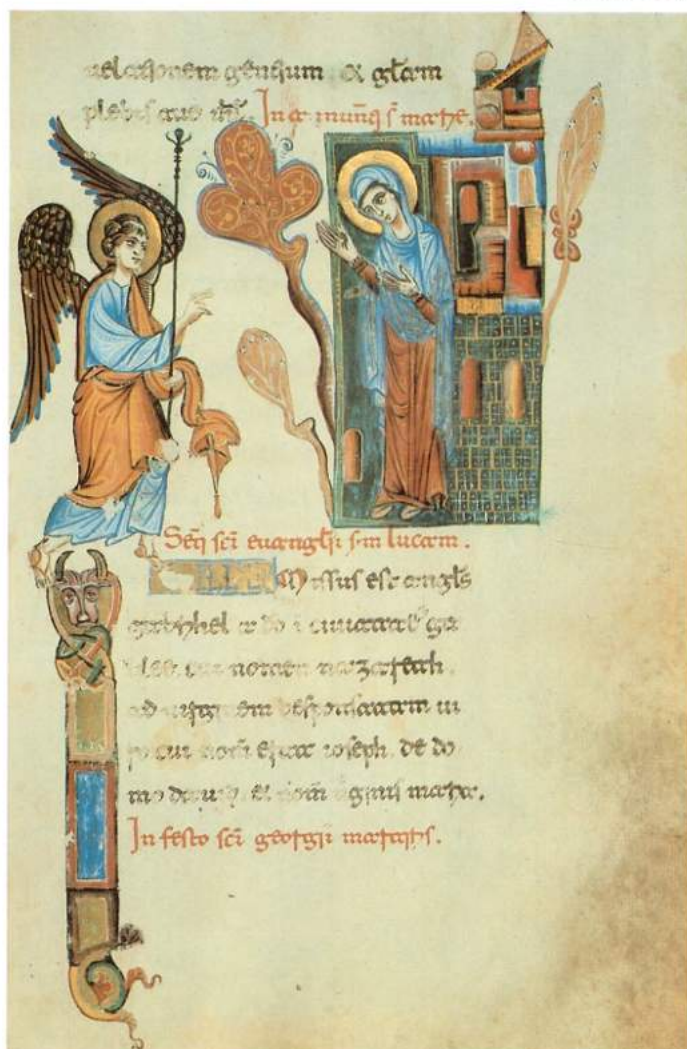 uelationem gentium & gl̃am
plebis tue isr̃l. In
Seq̃ sc̃i euangl̃ii sm̃ lucam.
Missus est angl̃s
gabrihel a do i ciuitate ga
lilee cui nomen nazareth.
ad uirginem desponsatam ui
ro cui nom̃ erat ioseph. de do
mo dauid. et nom̃ uginis maria.
In festo sc̃i georgii